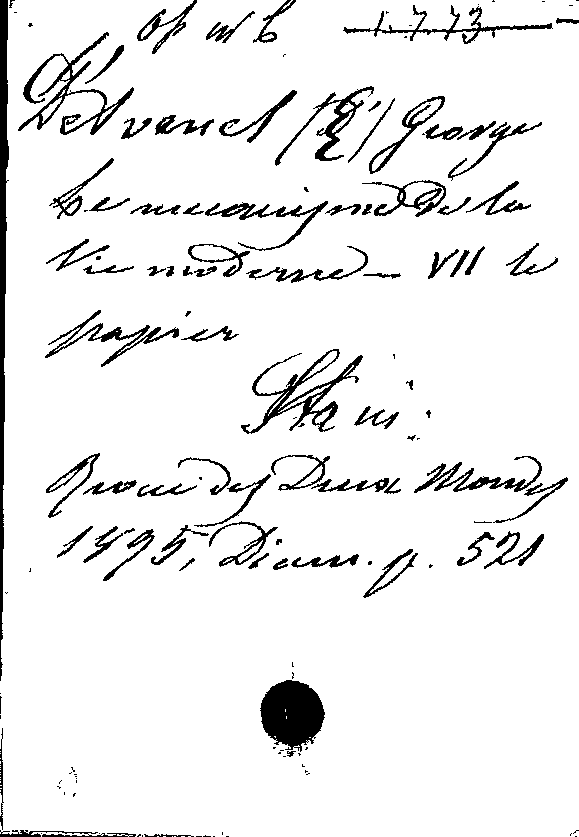 1.773.
D'Avenel (G) George
Le mecanisme de la
Vie moderne — VII le
papier
Revue des Deux Mondes
1895, p. 521